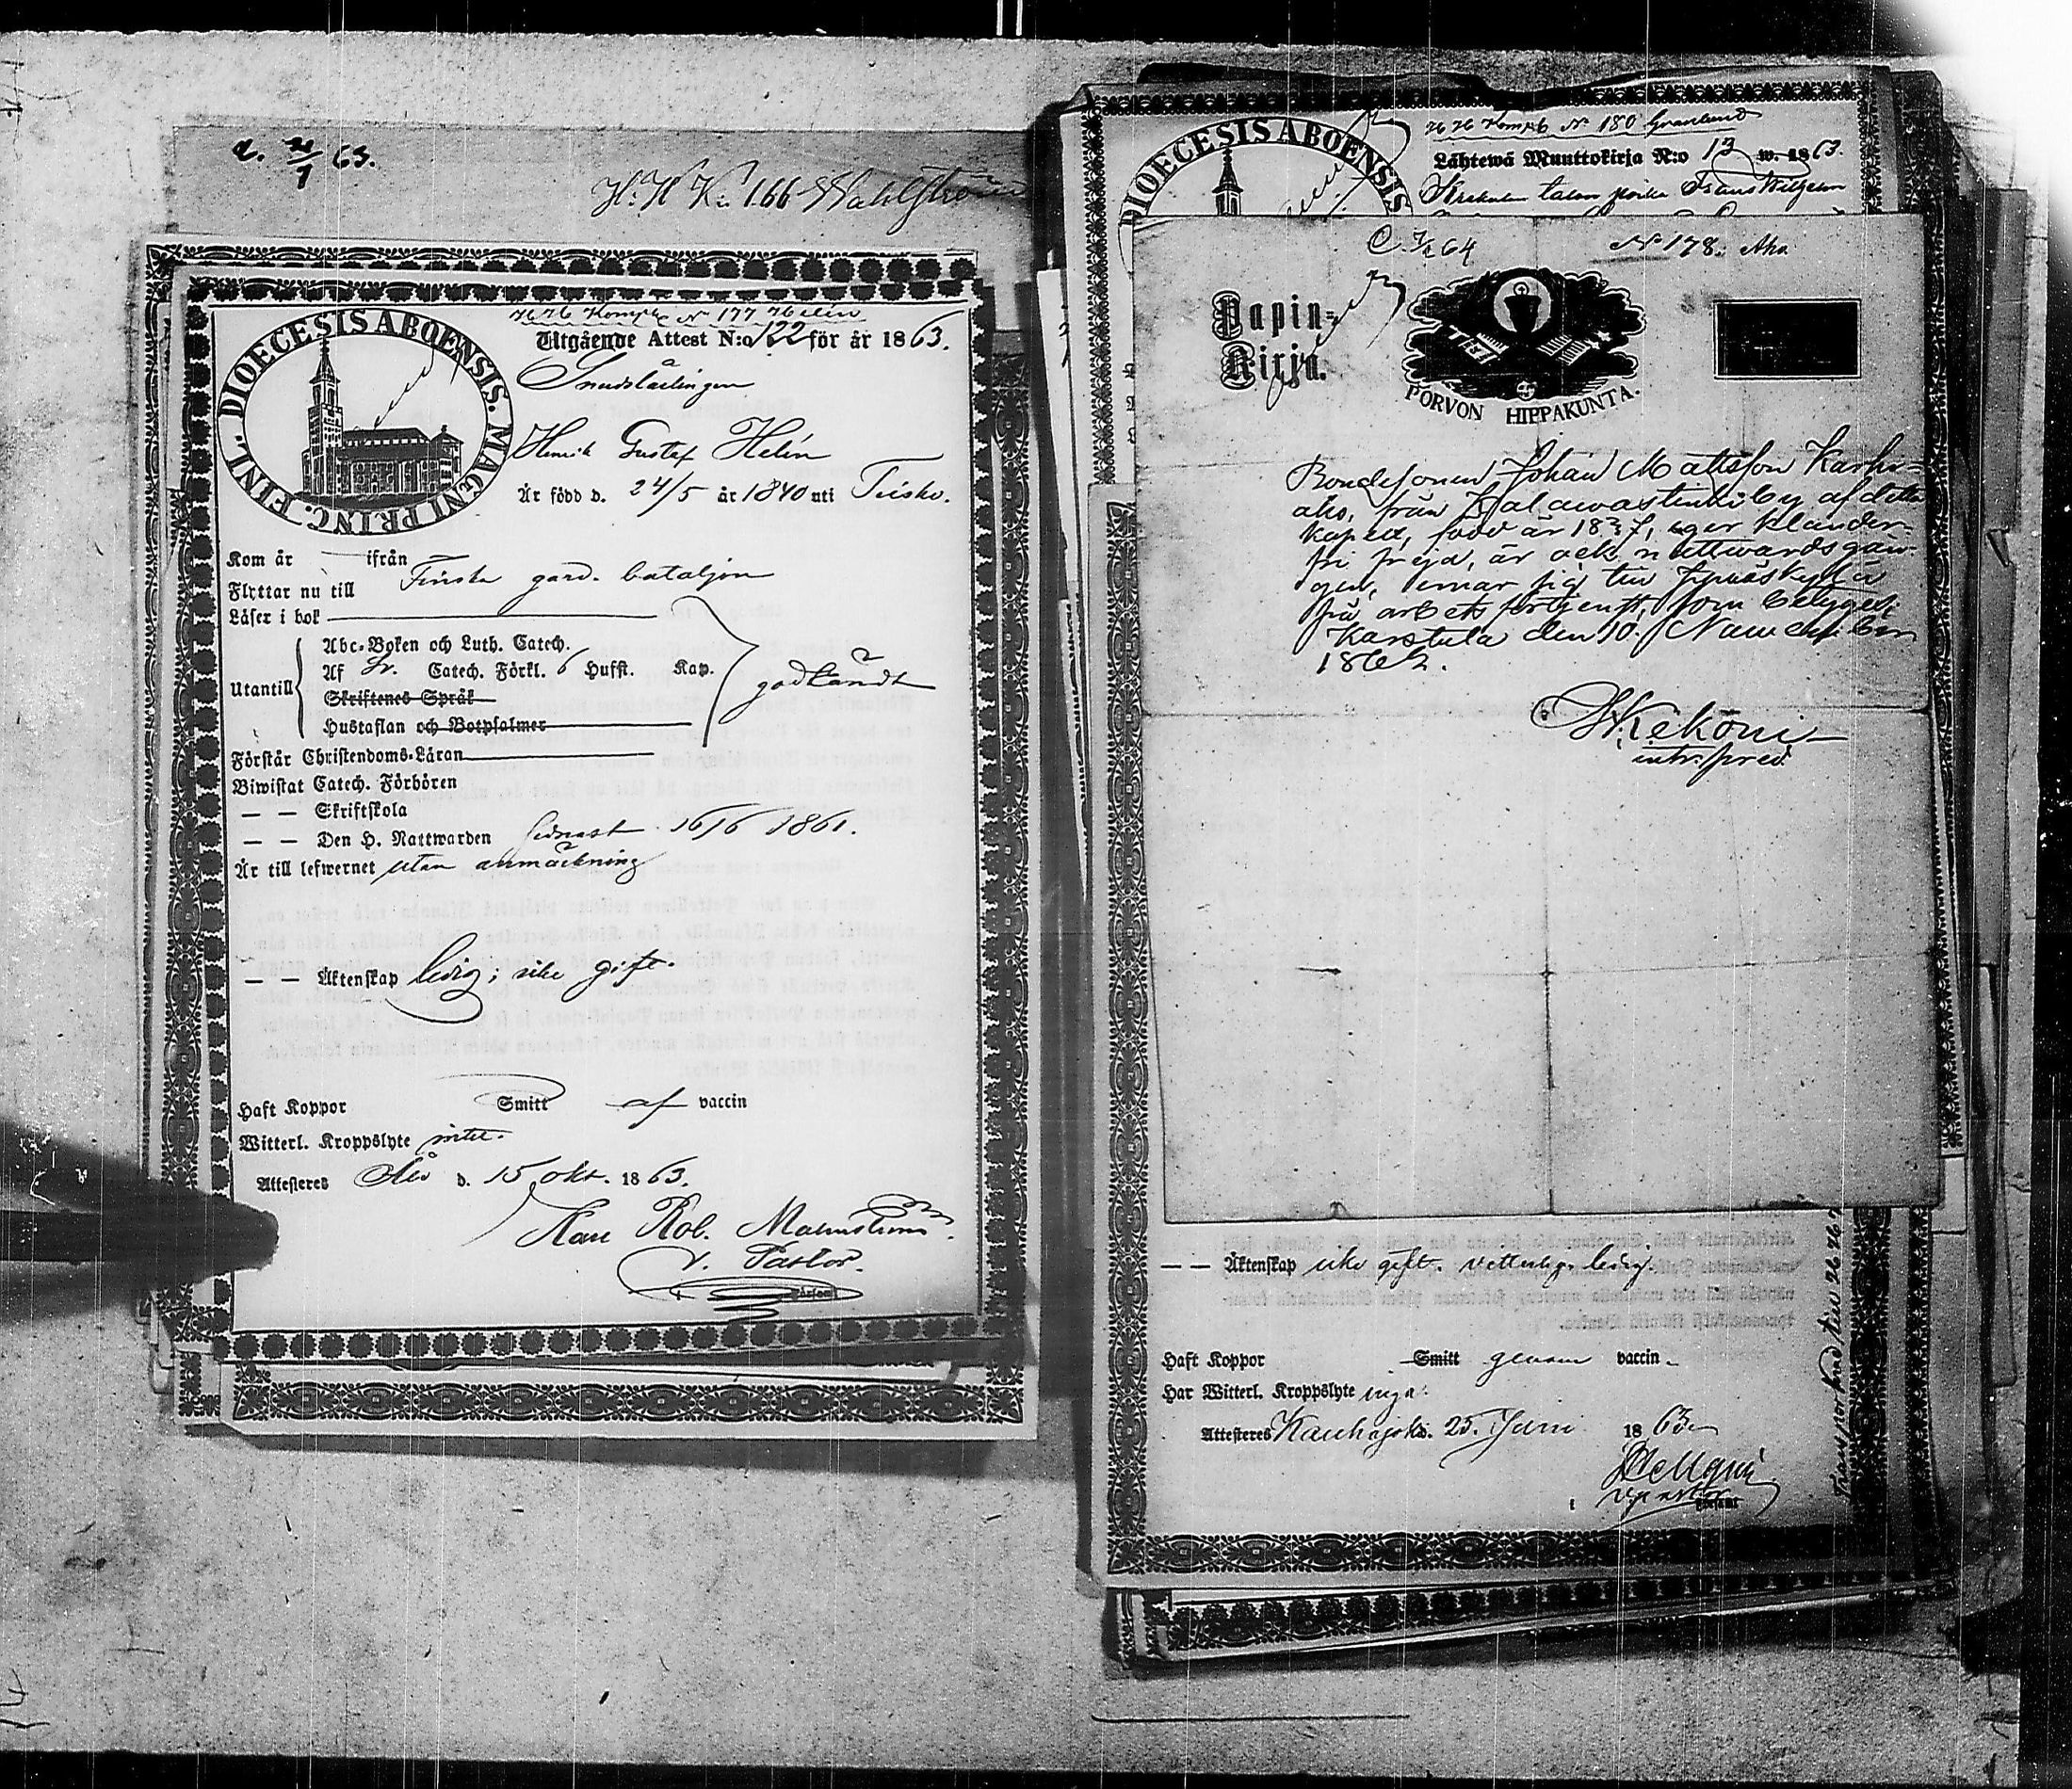 d. 21/1 63.
H. H. K. 166 Wahlström
H H Komp. N 177 Helin
DIOECESIS ABOENSIS. MAGNI PRINC. FINL.
Utgående Attest N:o 122 för år 1863.
Smedslärlingen
Henrik Gustaf Helin
Är född d. 24/5 år 1840 uti
Kom år — ifrån
Flyttar nu till Finska gard. bataljon
Läser i bok
Utantill
Abc-Boken och Luth. Catech.
Af Sv. Catech. Förkl. 6 Hufst. Kap.
Skriftenes Språk
Hustaflan och Botpsalmer
godkändt
Förstår Christendoms-Läran
Biwistat Catech. Förhören
— — Skriftskola
— — Den H. Nattwarden sednast 16/6 1861.
Är till lefwernet utan anmärkning
— — Äktenskap ledig; icke gift.
Haft Koppor Smitt af vaccin
Witterl. Kroppslyte intet.
Attesteres Åbo d. 15 okt. 1863.
Karl Rob. Malmström
v. Pastor.
H H Komp. N 180 Granlund
DIOECESIS ABOENSIS
Lähtewä Muuttokirja N:o 13 w. 1863.
talon Frans Wilhelm
64
N 178. Aho
Papin-
Kirja.
PORVON HIPPAKUNTA.
Bondesonen Johan Mattsson Karhu-
aho, från by af detta
kapell, född år 1837, eger klander-
fri frejd, är ock nattwardsgån-
gen, ernar sig till Jyväskylä
på arbetsförtjenst, som betygas;
Karstula den 10. November
1862.
Kekoni
intr. pred.
— — Äktenskap icke gift. vetterlig. ledig.
Haft Koppor Smitt genom vaccin
Har Witterl. Kroppslyte inga.
Attesteres Kauhajoki d. 25. Juni 1863
v pastor